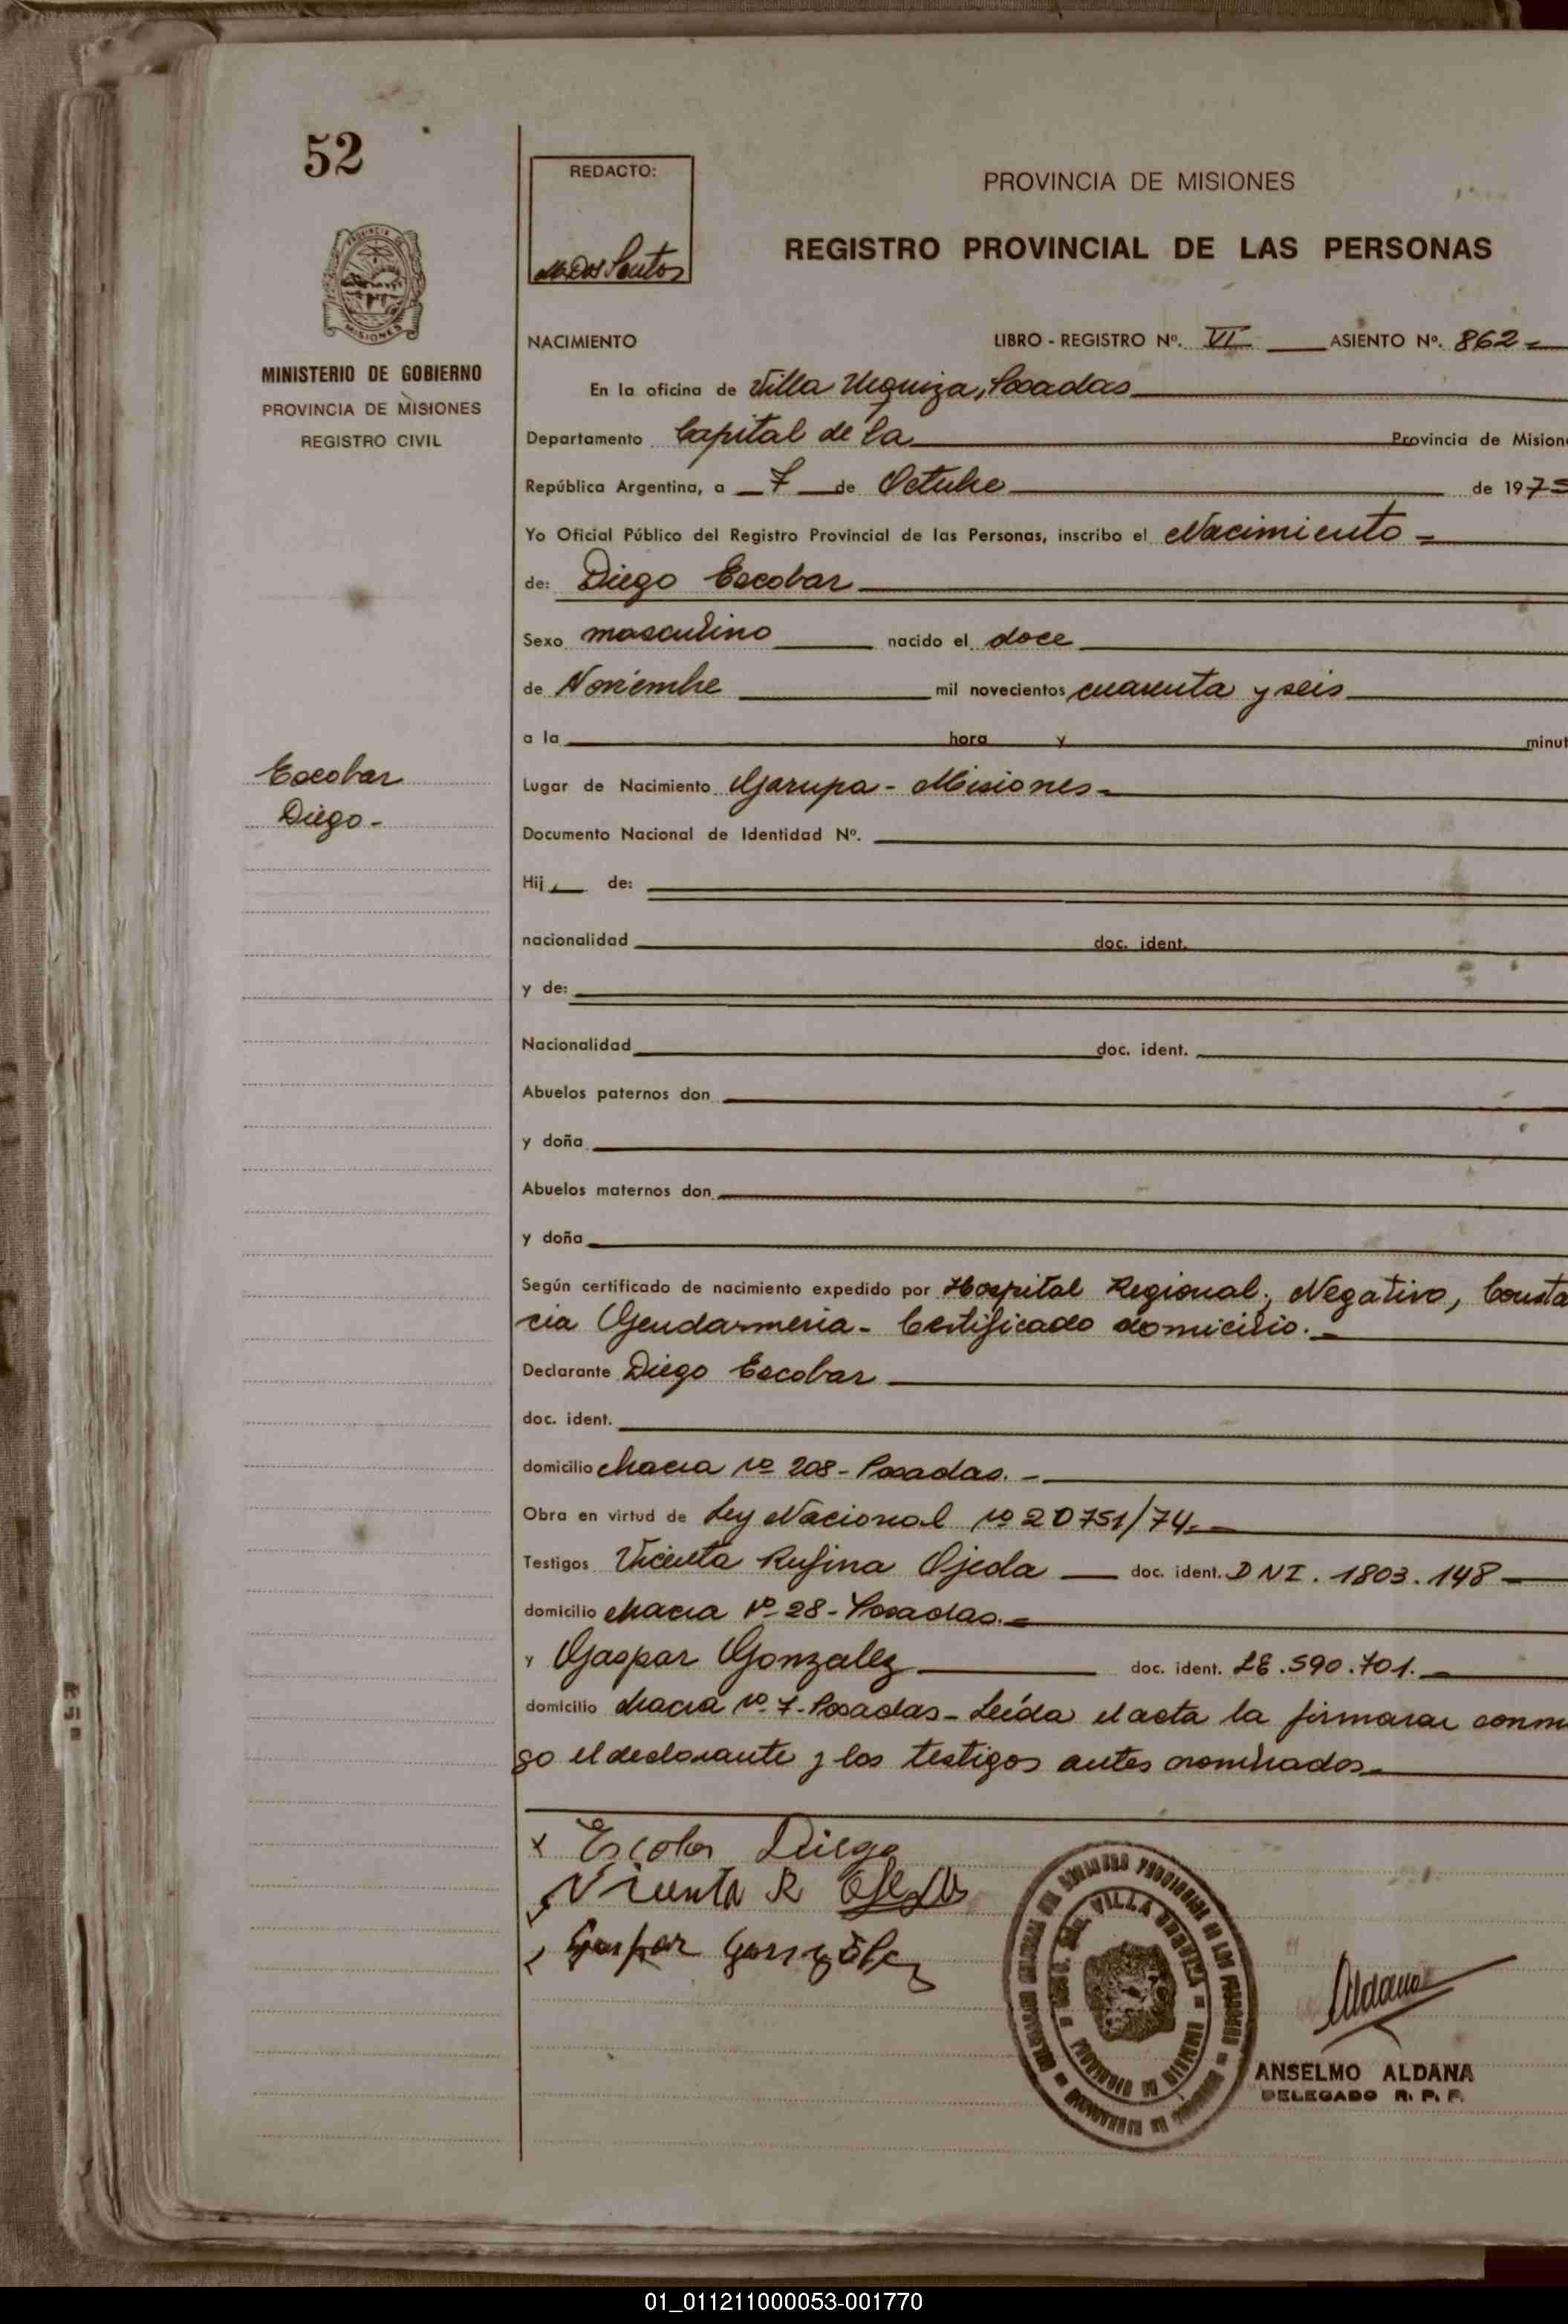 52
REDACTO:
M. Dos Santos
PROVINCIA DE MISIONES
REGISTRO PROVINCIAL DE LAS PERSONAS
PROVINCIA DE
MISIONES
MINISTERIO DE GOBIERNO
PROVINCIA DE MISIONES
REGISTRO CIVIL
NACIMIENTO LIBRO - REGISTRO Nº. VI ASIENTO Nº. 862
En la oficina de Villa Urquiza, Posadas
Departamento Capital de la Provincia de Mision
República Argentina, a 7 de Octubre de 1975
Yo Oficial Público del Registro Provincial de las Personas, inscribo el Nacimiento
de: Diego Escobar
Sexo masculino nacido el doce
de Noviembre mil novecientos cuarenta y seis
a la hora y minut
Escobar
Diego -
Lugar de Nacimiento Garupa - Misiones
Documento Nacional de Identidad Nº.
Hij de:
nacionalidad doc. ident.
y de:
Nacionalidad doc. ident.
Abuelos paternos don
y doña
Abuelos maternos don
y doña
Según certificado de nacimiento expedido por Hospital Regional, Negativo, Consta
cia Gendarmeria - Certificado domicilio. -
Declarante Diego Escobar
doc. ident.
domicilio Chacra Nº 208 - Posadas. -
Obra en virtud de Ley Nacional Nº 20751/74. -
Testigos Vicenta Rufina Ojeda doc. ident. DNI. 1803.148
domicilio Chacra Nº 28 - Posadas.
y Gaspar Gonzalez doc. ident. LE. 590.701.
domicilio Chacra Nº 7 - Posadas - Leída el acta la firmaran conm
go el declarante y los testigos antes nominados
x Escobar Diego
Vicenta R Ojeda
Gaspar Gonzalez
VILLA URQUIZA
Aldana
ANSELMO ALDANA
DELEGADO R. P. P.
01_011211000053-001770